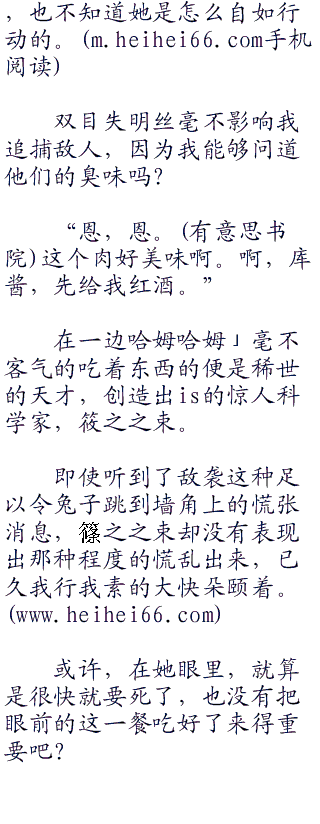 ，也不知道她是怎么自如行
动的。(m.heihei66.com手机
阅读)
双目失明丝毫不影响我
追捕敌人，因为我能够问道
他们的臭味吗？
“恩，恩。(有意思书
院)这个肉好美味啊。啊，库
酱，先给我红酒。”
在一边哈姆哈姆」毫不
客气的吃着东西的便是稀世
的天才，创造出is的惊人科
学家，筱之之束。
即使听到了敌袭这种足
以令兔子跳到墙角上的慌张
消息，篠之之束却没有表现
出那种程度的慌乱出来，已
久我行我素的大快朵颐着。
(www.heihei66.com)
或许，在她眼里，就算
是很快就要死了，也没有把
眼前的这一餐吃好了来得重
要吧？